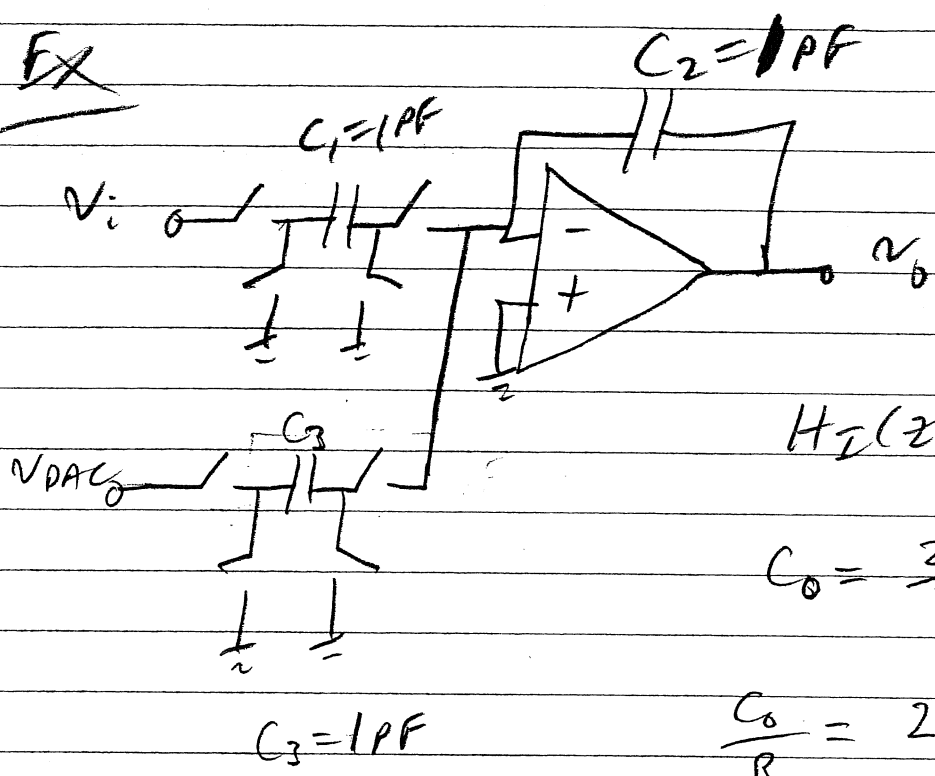 Ex
C₂ = 1 pF
C₁ = 1 pF
Vi
-
+
vo
C₃
vDAC
HI(z
C₀ =
C₃ = 1 pF
C₀ = 2